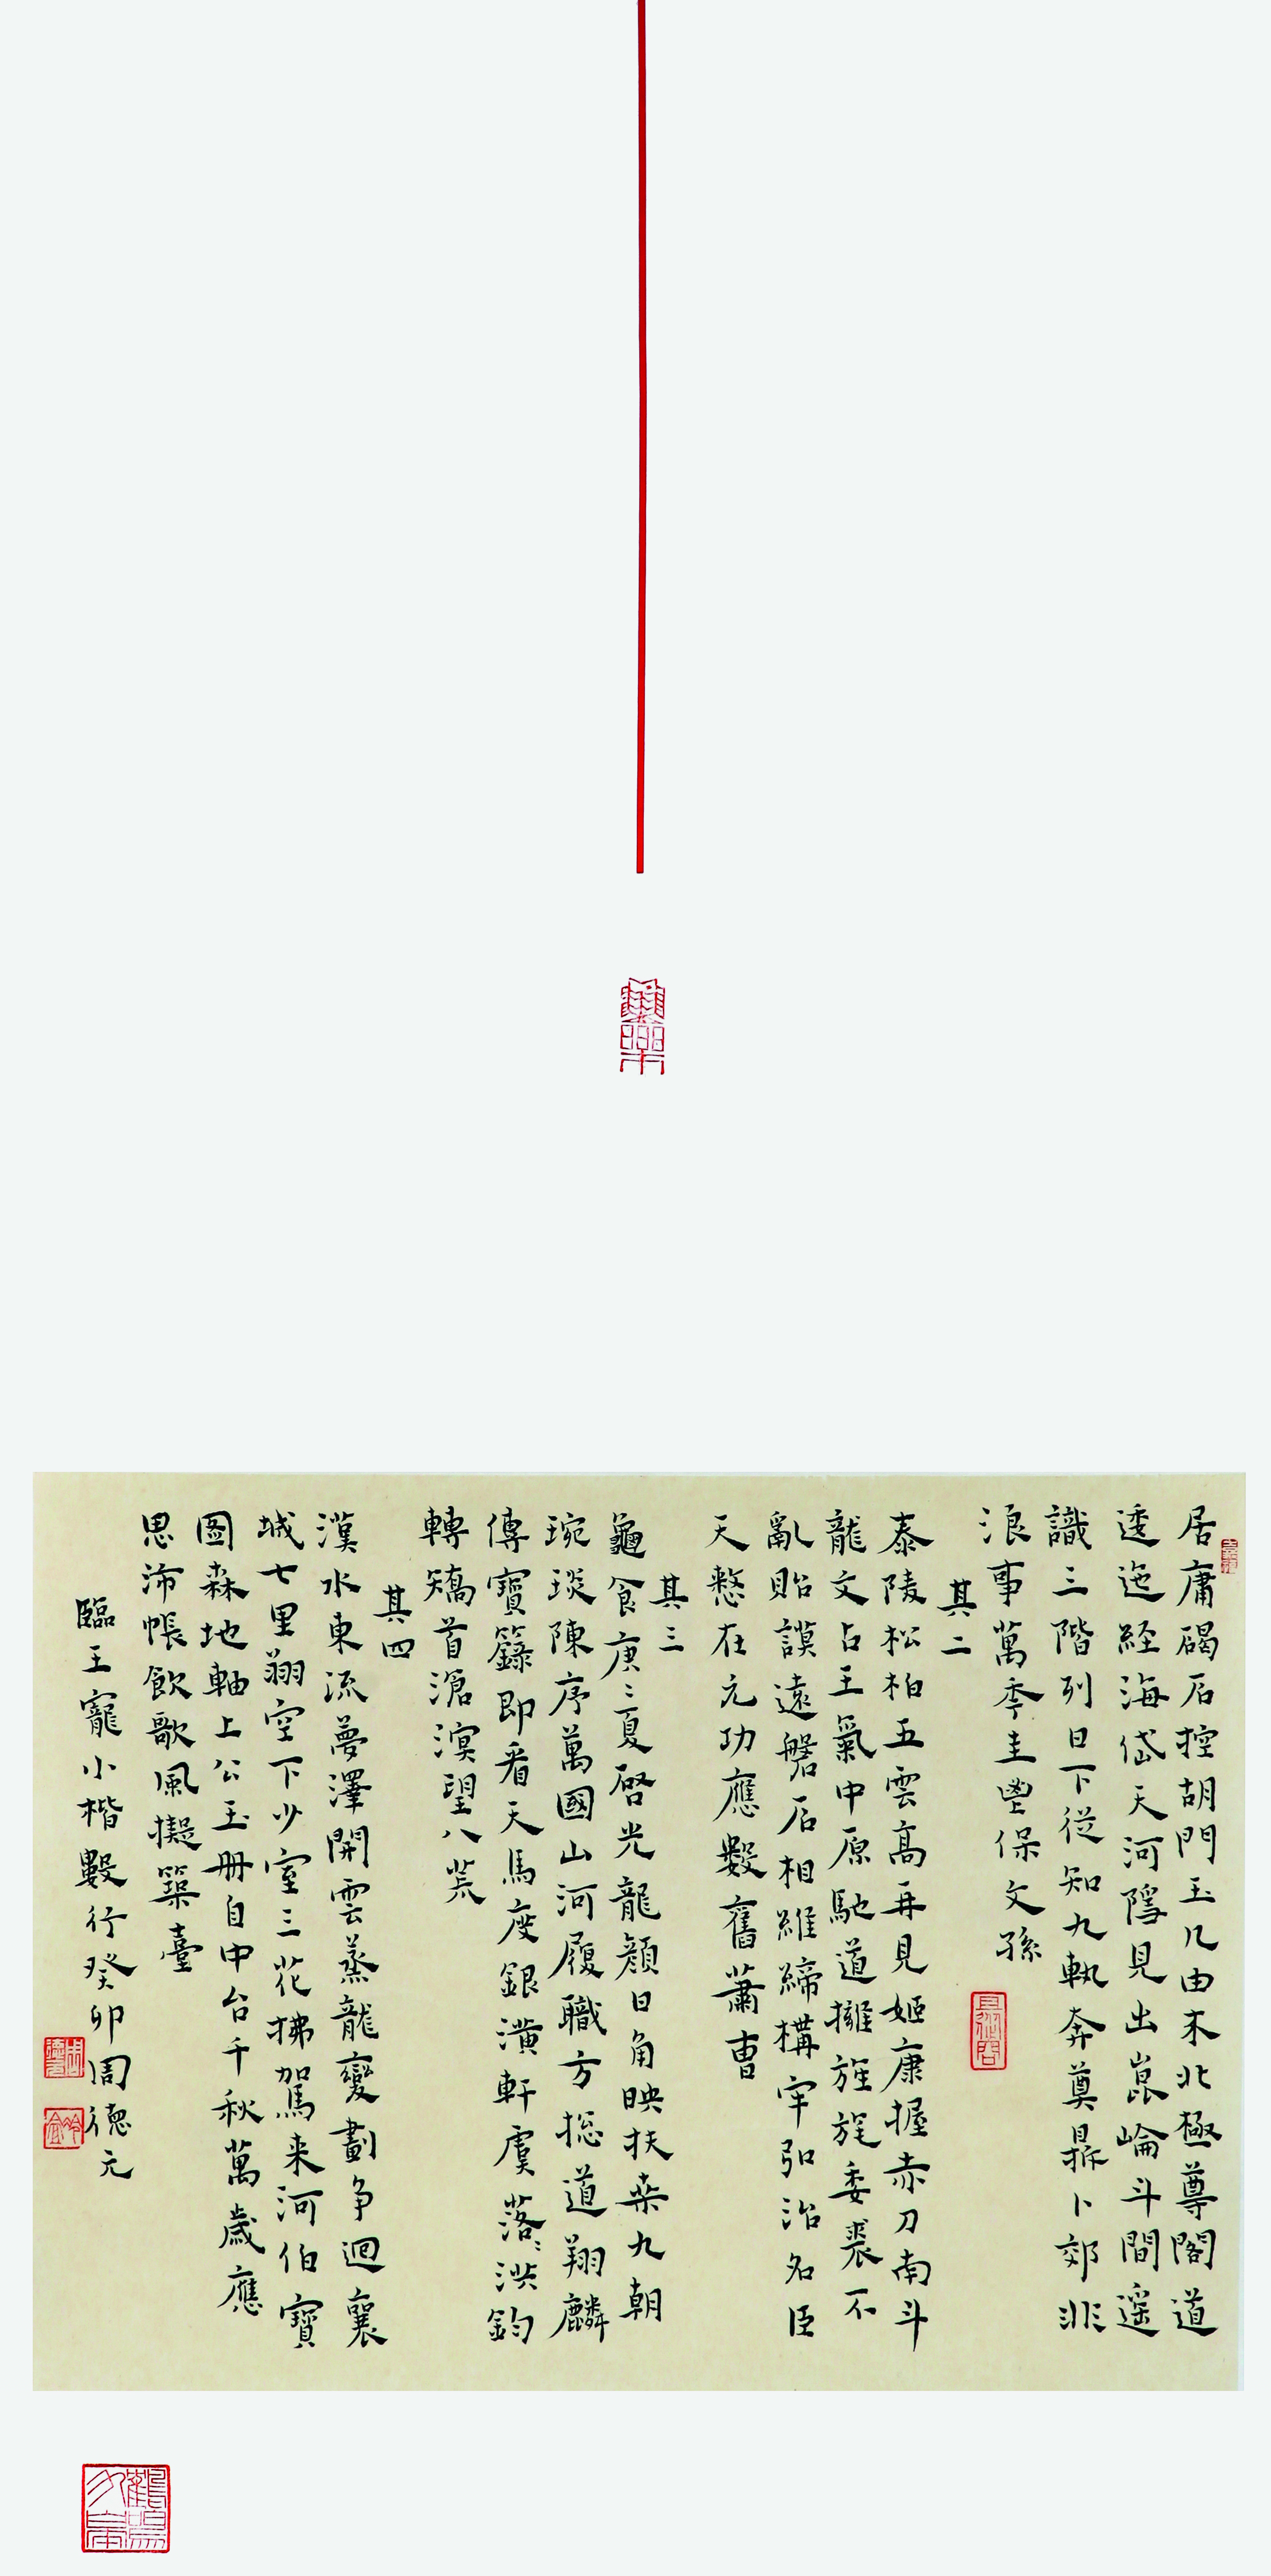 居庸碣石控胡門玉几由来北極尊閣道
逶迤経海岱天河隱見出崑崙斗間遥
識三階列日下従知九執奔奠鼎卜郊非
浪事萬季圭鬯保文孫
其二
泰陵松柏五雲高再見姬康握赤刀南斗
龍文占王氣中原馳道擁旌旄委裘不
亂貽謨遠磐石相維締構牢弘治名臣
天憖在元功應數舊蕭曹
其三
龜食庚〻夏啓光龍顔日角映扶桒九朝
琬琰陳序萬國山河履職方捴道翔麟
傳寶籙即看天馬度銀潢軒虞落〻洪鈞
轉矯首滄溟望八荒
其四
漢水東流夢澤開雲蒸龍變劃争迴襄
城七里翔空下少室三花拂駕来河伯寶
圖森地軸上公玉冊自中台千秋萬歲應
思沛帳飲歌風擬築臺
臨王寵小楷數行癸卯周德元